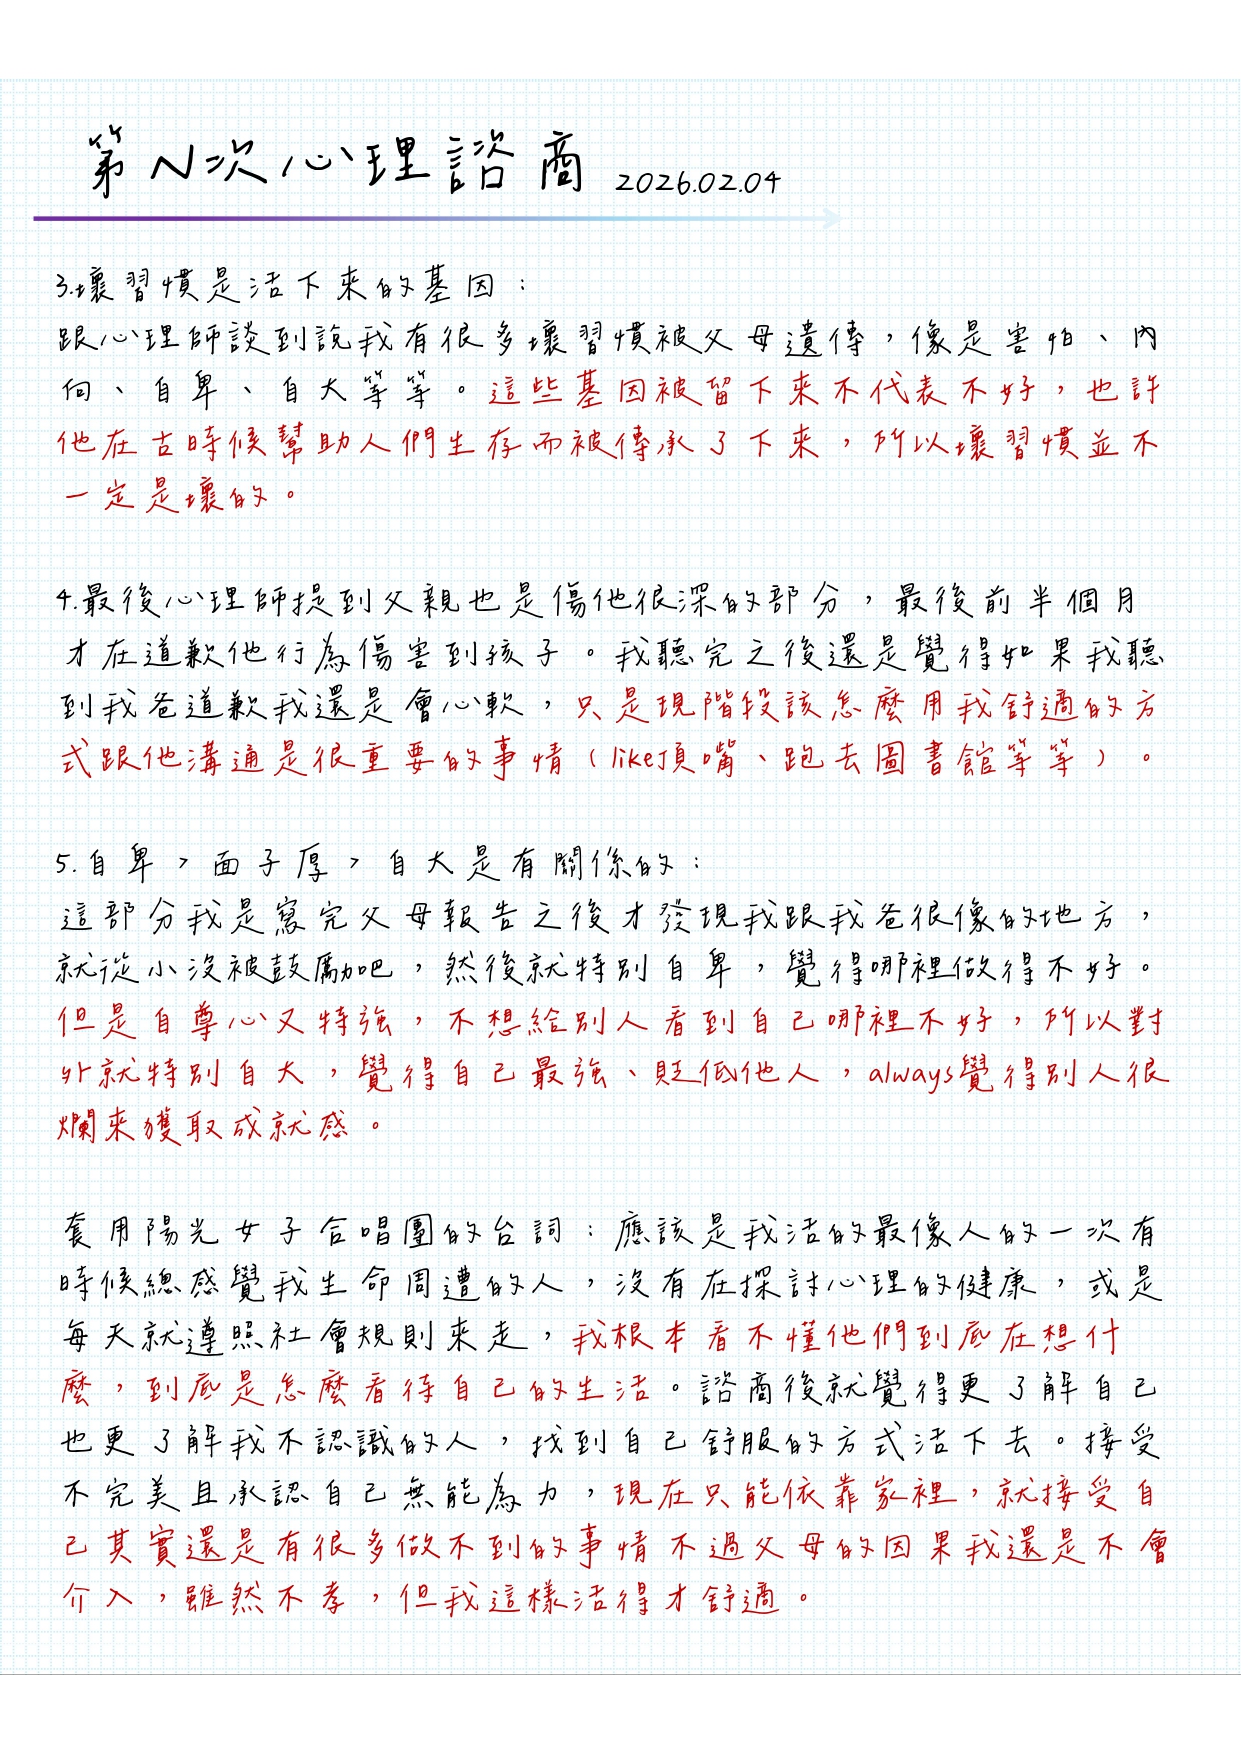 第N次心理諮商 2026.02.04
3.壞習慣是活下來的基因：
跟心理師談到說我有很多壞習慣被父母遺傳，像是害怕、內
向、自卑、自大等等。這些基因被留下來不代表不好，也許
他在古時候幫助人們生存而被傳承了下來，所以壞習慣並不
一定是壞的。
4.最後心理師提到父親也是傷他很深的部分，最後前半個月
才在道歉他行為傷害到孩子。我聽完之後還是覺得如果我聽
到我爸道歉我還是會心軟，只是現階段該怎麼用我舒適的方
式跟他溝通是很重要的事情（like頂嘴、跑去圖書館等等）。
5.自卑，面子厚，自大是有關係的：
這部分我是寫完父母報告之後才發現我跟我爸很像的地方，
就從小沒被鼓勵吧，然後就特別自卑，覺得哪裡做得不好。
但是自尊心又特強，不想給別人看到自己哪裡不好，所以對
外就特別自大，覺得自己最強、貶低他人，always覺得別人很
爛來獲取成就感。
套用陽光女子合唱團的台詞：應該是我活的最像人的一次有
時候總感覺我生命周遭的人，沒有在探討心理的健康，或是
每天就遵照社會規則來走，我根本看不懂他們到底在想什
麼，到底是怎麼看待自己的生活。諮商後就覺得更了解自己
也更了解我不認識的人，找到自己舒服的方式活下去。接受
不完美且承認自己無能為力，現在只能依靠家裡，就接受自
己其實還是有很多做不到的事情不過父母的因果我還是不會
介入，雖然不孝，但我這樣活得才舒適。